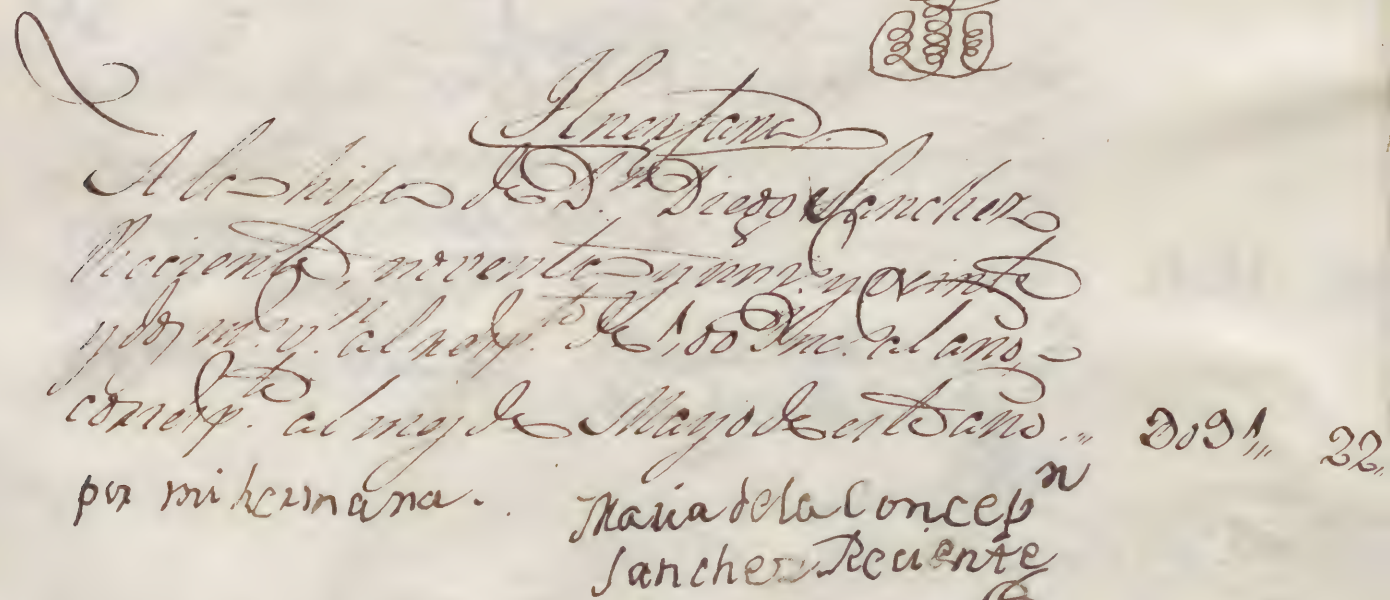 Huerfana
A la hija de D.n Diego Sanchez
Reciente, noventa y un r.s y veinte
y dos m.s v.n al resp.to de 100 Duc. al año,
corresp.te al mes de Mayo de este año . „ Do91„ 22„
por mi hermana. Maria de la Concep.n
Sanchez Reciente